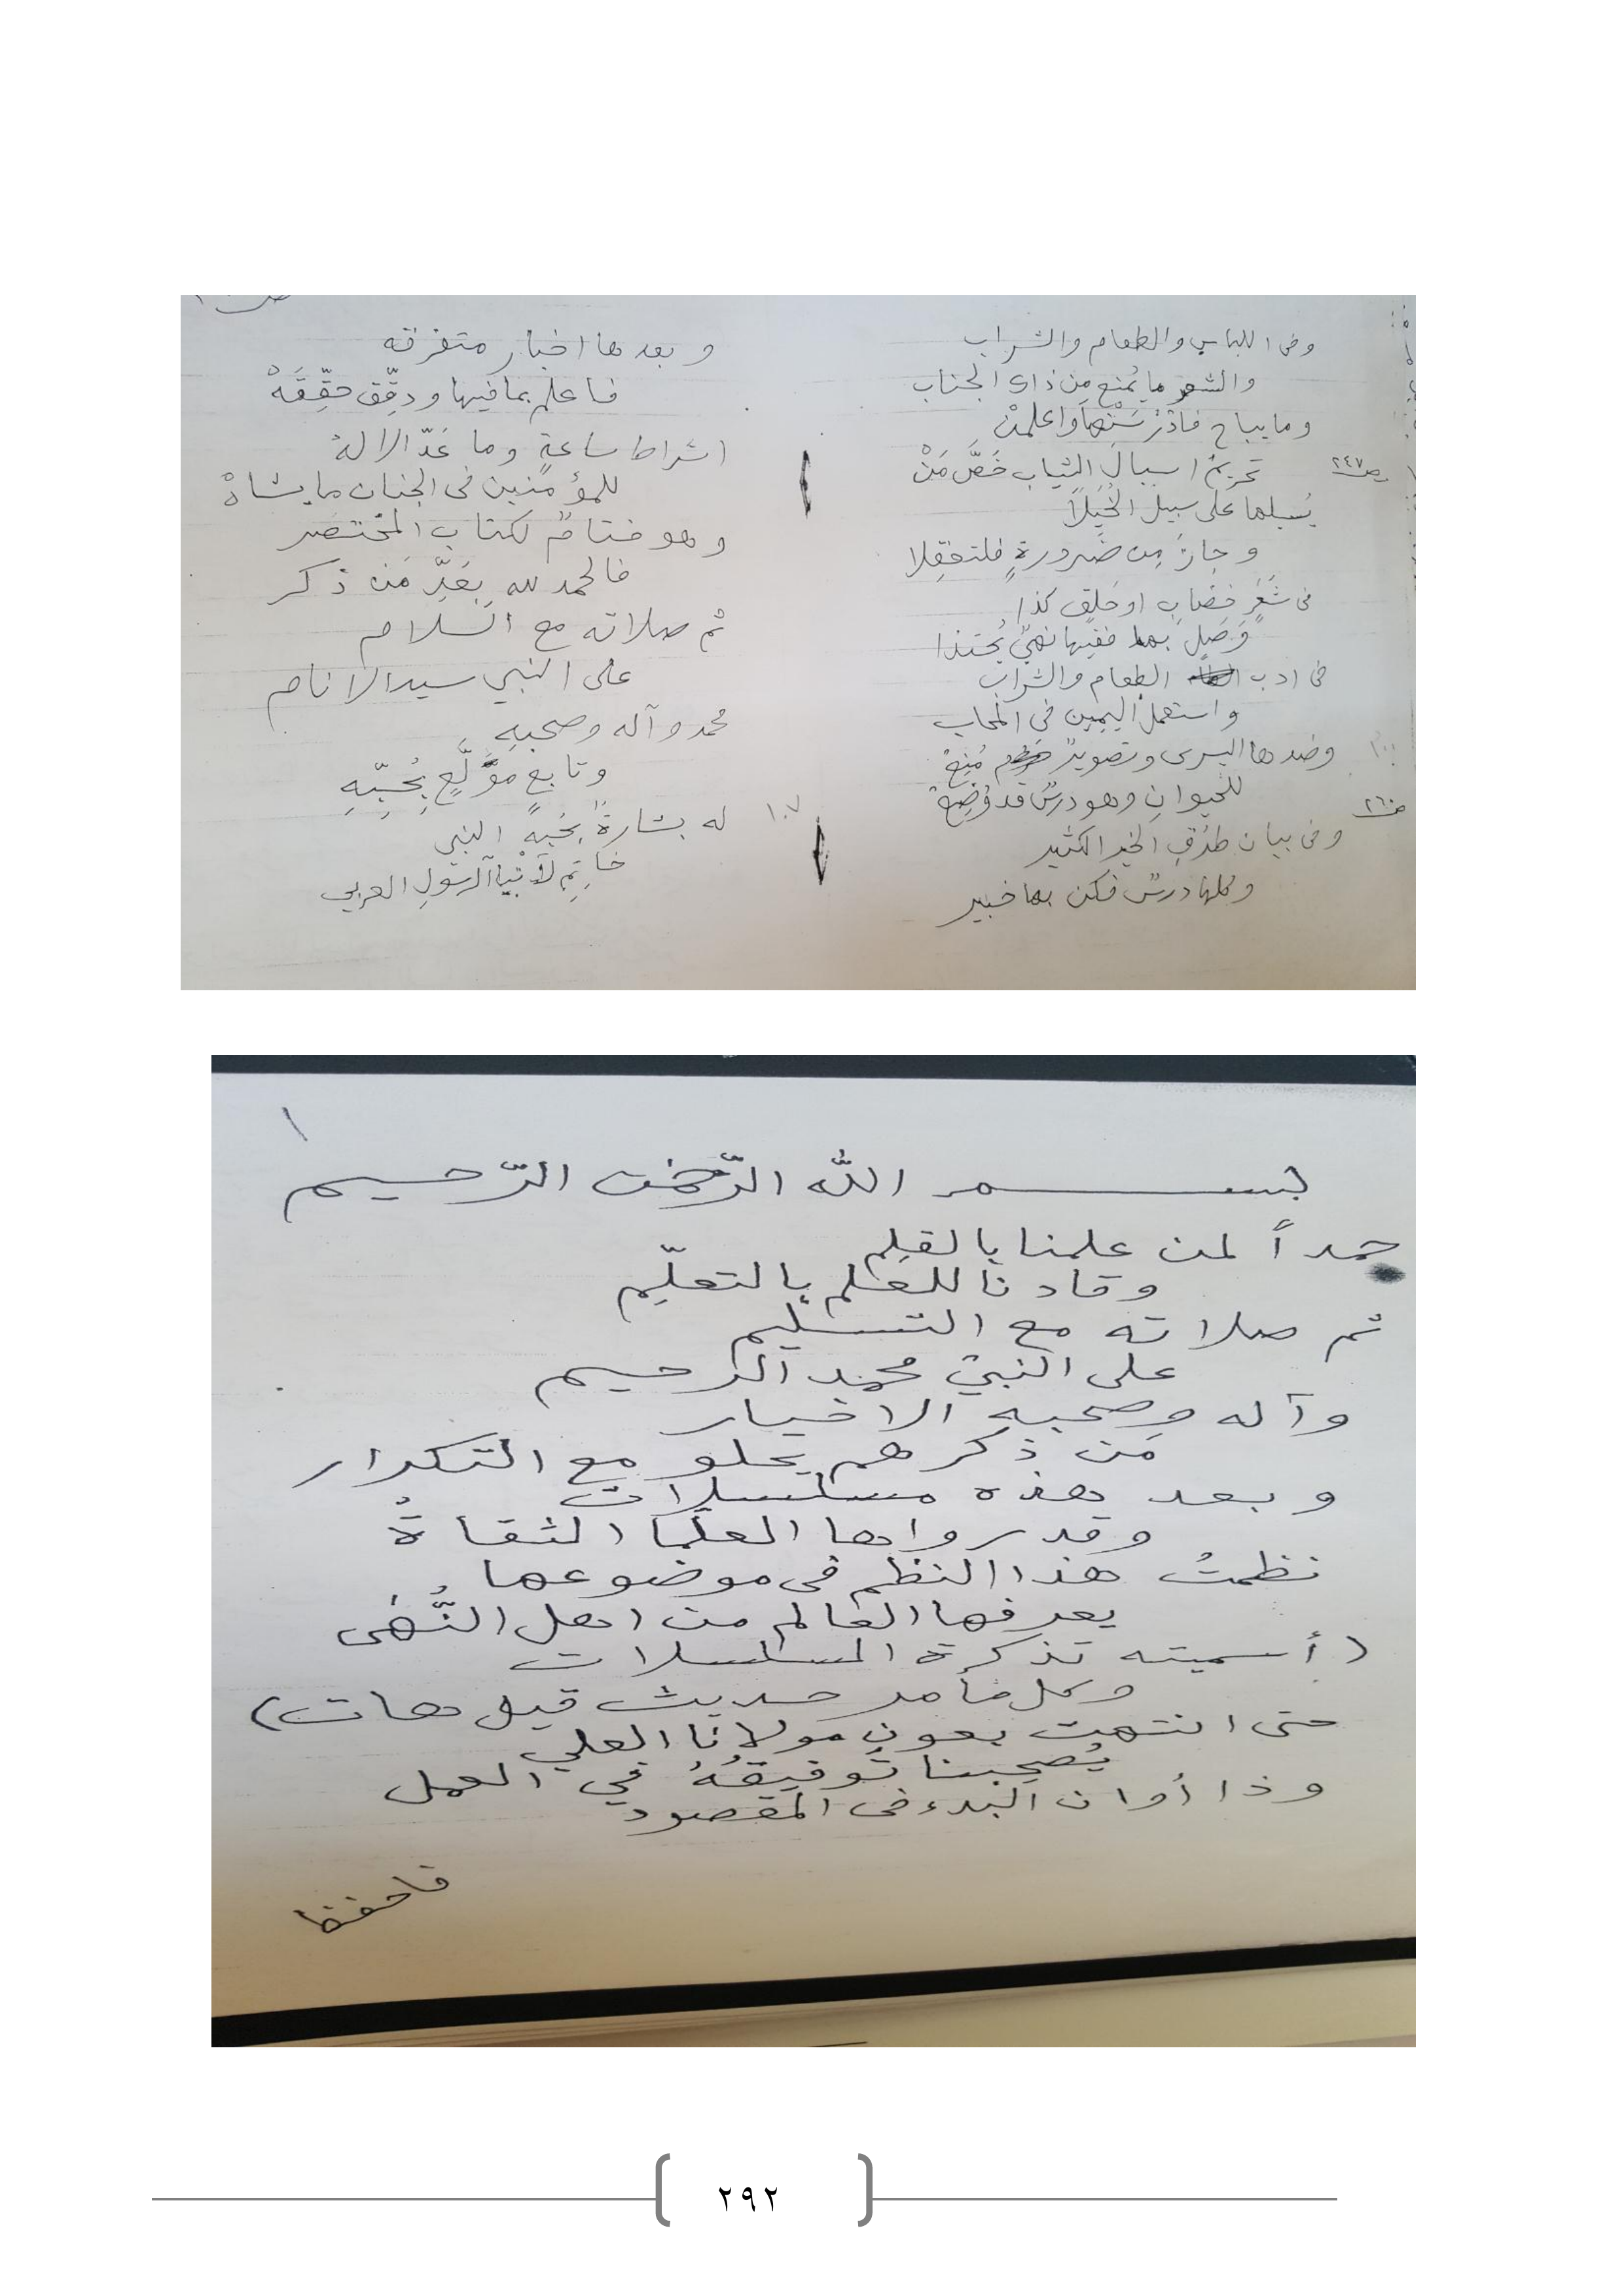 وفى اللباس والطعام والشراب
والشعر ما يُمنع مِن ذاك الجناب
وما يباح فادْرُسَنْها واعلمنْ
ص٢٤٧
تحريمُ اسبالِ الثياب خَصَّ مَنْ
يُسبلها على سبيل الخُيَلاَ
وجازَ مِن ضَرورةٍ فلتعقِلا
فى شَعَرٍ خضابِ او حَلقٍ كذا
وَصَلٍ بها ففيها نهيٌ يُحتذا
فى ادب الطعام والشراب
واستعمل اليمين فى المحاب
وضدها اليسرى وتصويرٌ مُنِعْ
للحيوانِ وهو درسٌ قد وُضِعْ
ص٢٦٠
وفى بيان طرُقِ الخير الكثير
وكلها درسٌ فكن بها خبير
وبعدها اخبار متفرقه
فاعلم بما فيها ودقِّق حقِّقَهْ
اشراط ساعةٍ وما عَدّ الالهْ
للمؤمنين فى الجنان ما يشاهْ
وهو ختامٌ لكتاب المختصر
فالحمد لله بِعَدِّ مَن ذكر
ثم صلاته مع السلام
على النبي سيد الانام
محمد وآله وصحبهِ
وتابعٍ مؤلَّعٍ بِحُبِّهِ
١٠٧
له بشارةٌ بحُبهِ النبي
خاتِمِ لأنبيا الرسولِ العربي
١
بسم الله الرّحمن الرّحيم
حمداً لمن علمنا بالقلم
وقادنا للعلم بالتعلّيم
ثم صلاته مع التسليم
على النبيّ محمد الرحيم
وآله وصحبه الاخيار
مَن ذكرهم يحلو مع التكرار
وبعد هذه مسلسلات
وقد رواها العلما الثقاةُ
نظمتُ هذا النظم فى موضوعها
يعرفها العالم من اهل النُّهَى
(أسميته تذكرة المسلسلات
وكل ما مر حديث قيل هات)
حتى انتهت بعونِ مولانا العلي
يُصحبنا توفيقُهُ في العمل
وذا أوان البدء فى المقصود
فاحفظ
٢٩٢